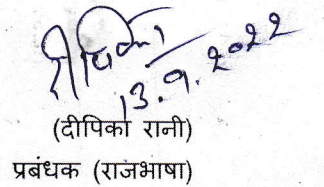 दीपिका
13.9.2022
(दीपिका रानी)
प्रबंधक (राजभाषा)